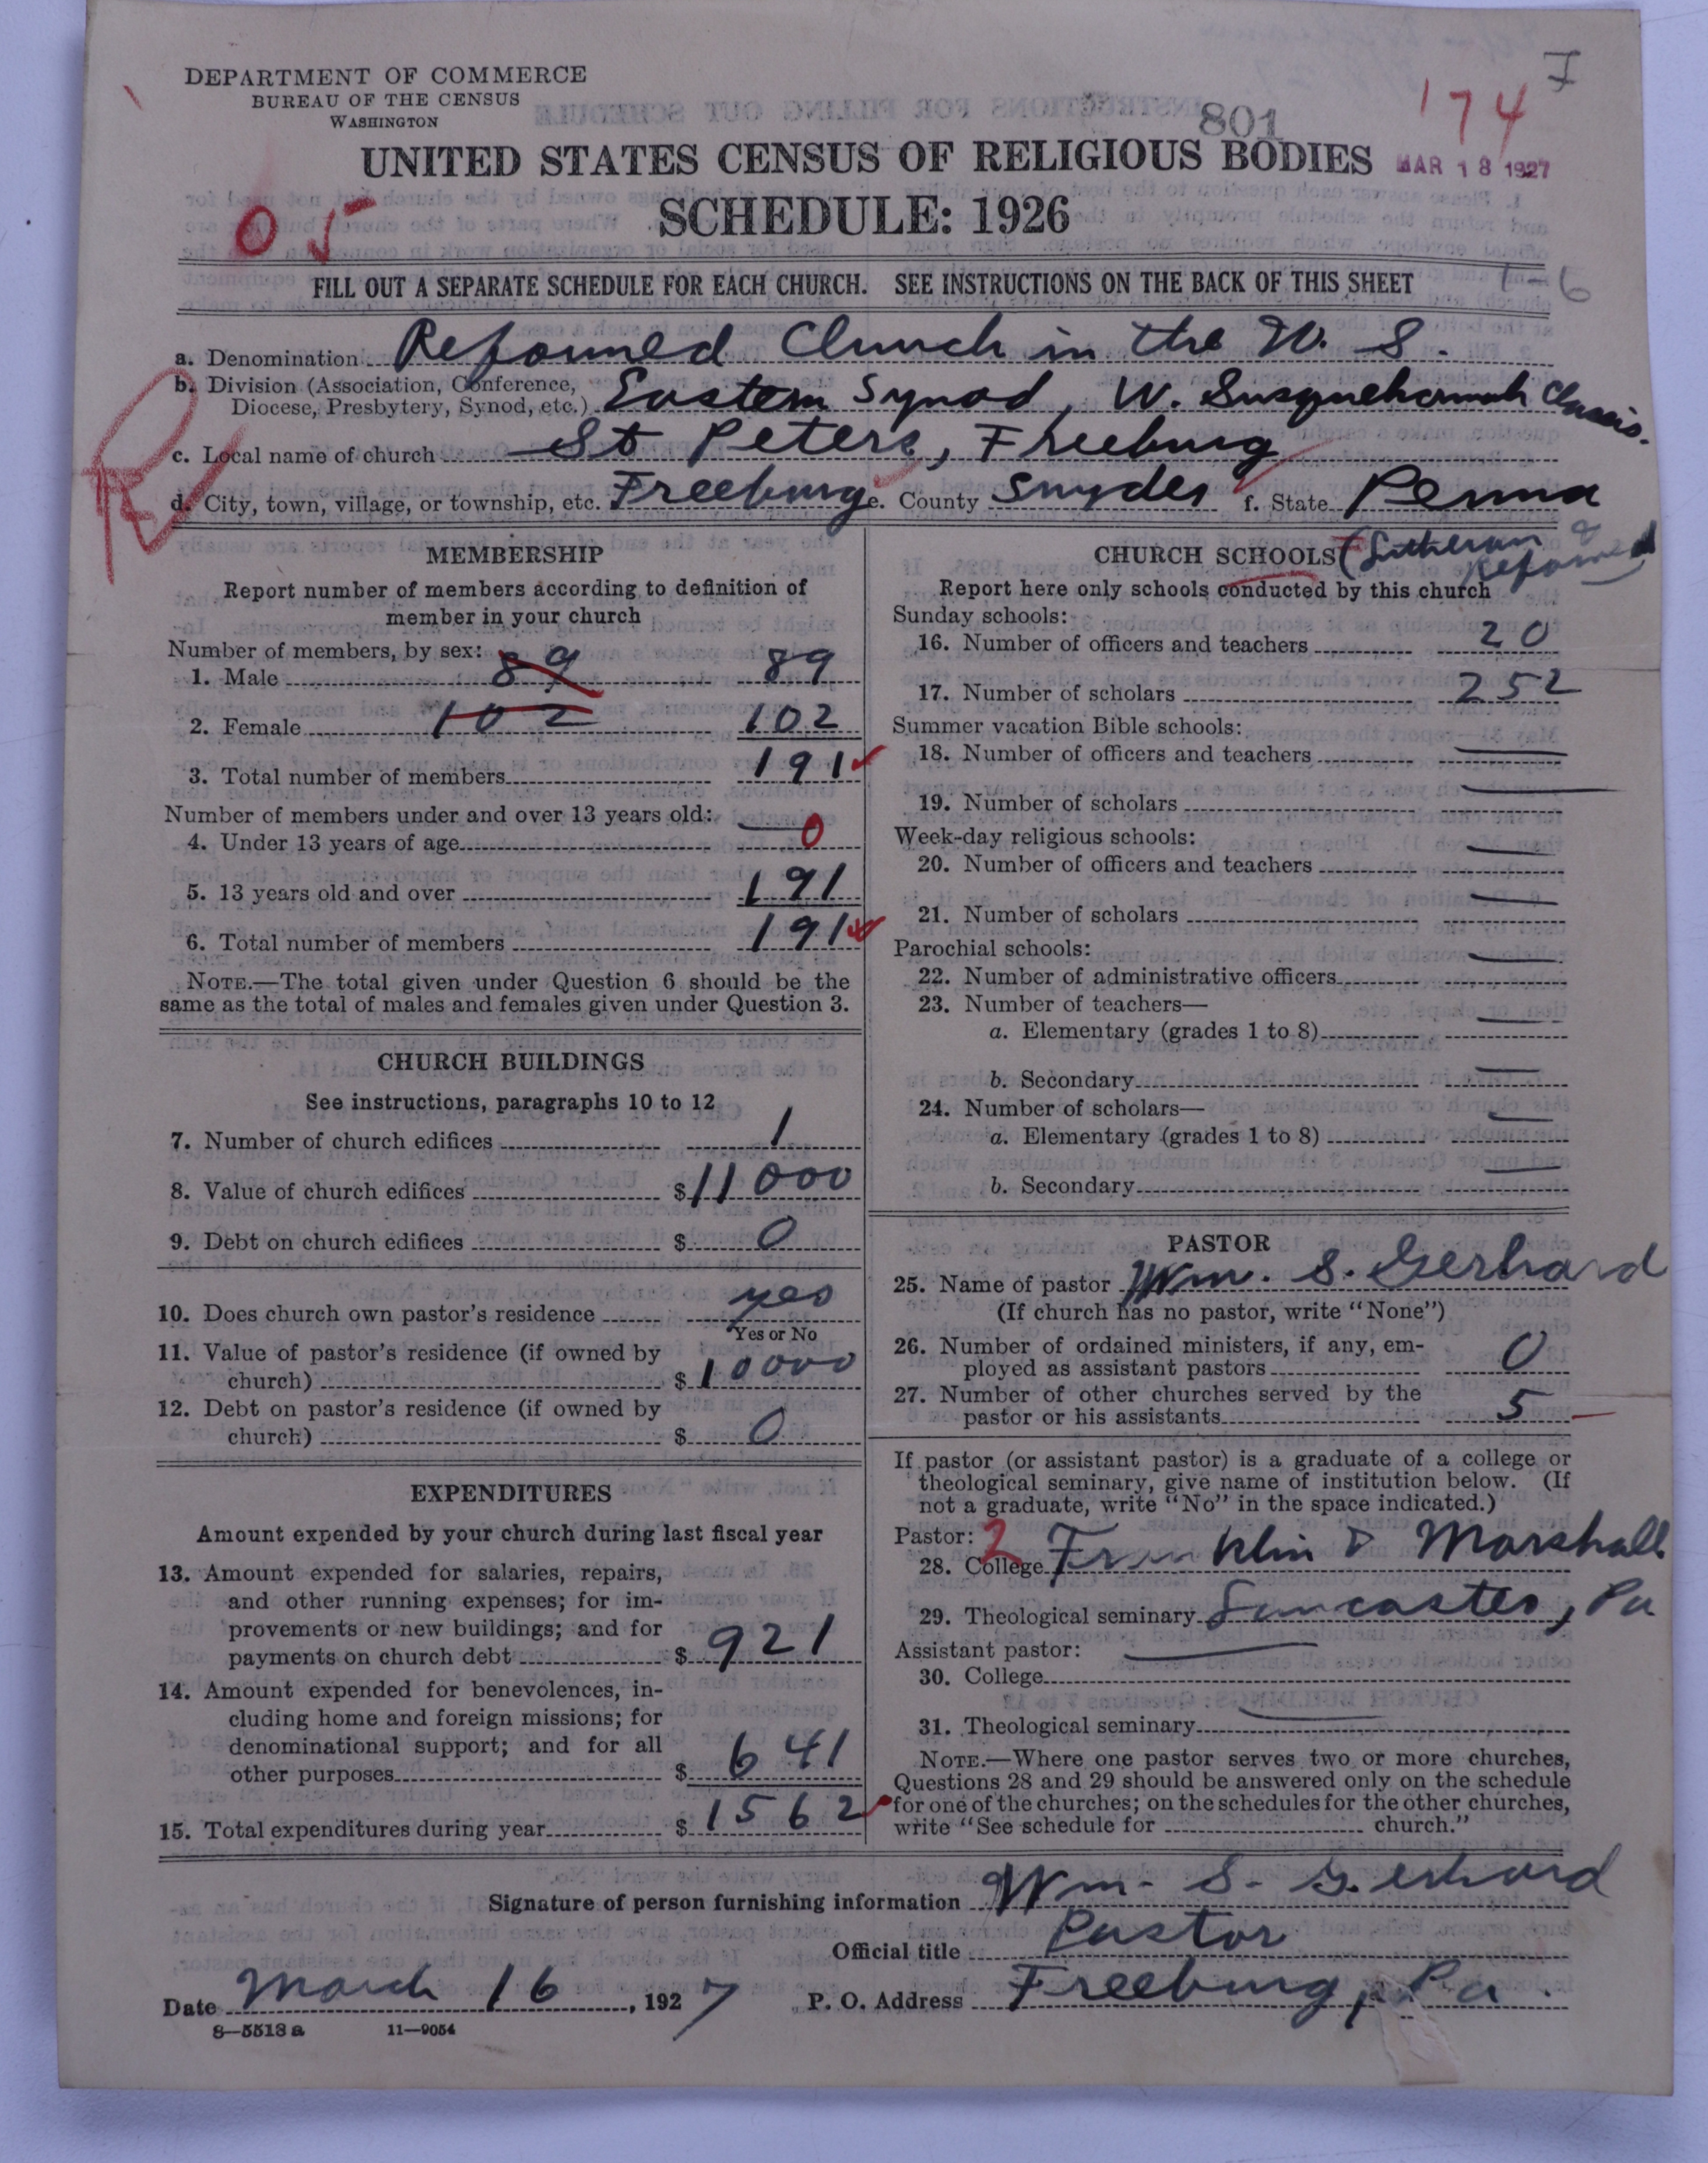 DEPARTMENT OF COMMERCE
BUREAU OF THE CENSUS
WASHINGTON
7
174
801
UNITED STATES CENSUS OF RELIGIOUS BODIES
MAR 18 1927
SCHEDULE: 1926
05
FILL OUT A SEPARATE SCHEDULE FOR EACH CHURCH. SEE INSTRUCTIONS ON THE BACK OF THIS SHEET
1-6
a. Denomination Reformed Church in the U. S.
b. Division (Association, Conference, Diocese, Presbytery, Synod, etc.) Eastern Synod, W. Susquehannah Classis.
c. Local name of church St Peters, Freeburg
d. City, town, village, or township, etc. Freeburg e. County Snyder f. State Penna
MEMBERSHIP
Report number of members according to definition of
member in your church
Number of members, by sex:
1. Male 89 89
2. Female 102 102
3. Total number of members 191
Number of members under and over 13 years old:
4. Under 13 years of age 0
5. 13 years old and over 191
6. Total number of members 191
NOTE.—The total given under Question 6 should be the
same as the total of males and females given under Question 3.
CHURCH BUILDINGS
See instructions, paragraphs 10 to 12
7. Number of church edifices 1
8. Value of church edifices $11000
9. Debt on church edifices $ 0
10. Does church own pastor's residence yes
Yes or No
11. Value of pastor's residence (if owned by
church) $10000
12. Debt on pastor's residence (if owned by
church) $ 0
EXPENDITURES
Amount expended by your church during last fiscal year
13. Amount expended for salaries, repairs,
and other running expenses; for im-
provements or new buildings; and for
payments on church debt $ 921
14. Amount expended for benevolences, in-
cluding home and foreign missions; for
denominational support; and for all
other purposes $ 641
15. Total expenditures during year $ 1562
CHURCH SCHOOLS (Lutheran & Reformed)
Report here only schools conducted by this church
Sunday schools:
16. Number of officers and teachers 20
17. Number of scholars 252
Summer vacation Bible schools:
18. Number of officers and teachers
19. Number of scholars
Week-day religious schools:
20. Number of officers and teachers
21. Number of scholars
Parochial schools:
22. Number of administrative officers
23. Number of teachers—
a. Elementary (grades 1 to 8)
b. Secondary
24. Number of scholars—
a. Elementary (grades 1 to 8)
b. Secondary
PASTOR
25. Name of pastor Wm. S. Gerhard
(If church has no pastor, write "None")
26. Number of ordained ministers, if any, em-
ployed as assistant pastors 0
27. Number of other churches served by the
pastor or his assistants 5
If pastor (or assistant pastor) is a graduate of a college or
theological seminary, give name of institution below. (If
not a graduate, write "No" in the space indicated.)
Pastor: 2
28. College Franklin & Marshall
29. Theological seminary Lancaster, Pa
Assistant pastor:
30. College
31. Theological seminary
NOTE.—Where one pastor serves two or more churches,
Questions 28 and 29 should be answered only on the schedule
for one of the churches; on the schedules for the other churches,
write "See schedule for church."
Signature of person furnishing information Wm. S. Gerhard
Official title Pastor
Date March 16, 1927 P. O. Address Freeburg, Pa.
8—5513 a 11—9054